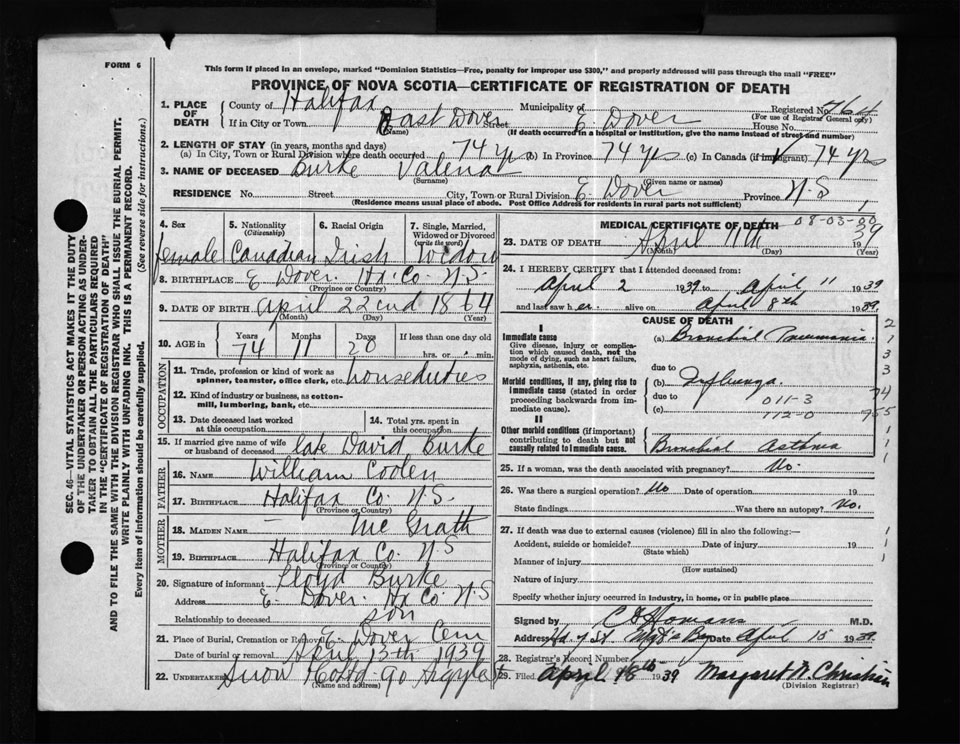 FORM 6
This form if placed in an envelope, marked "Dominion Statistics—Free, penalty for improper use $300," and properly addressed will pass through the mail "FREE"
PROVINCE OF NOVA SCOTIA—CERTIFICATE OF REGISTRATION OF DEATH
1. PLACE OF DEATH
County of Halifax Municipality of Registered No.
(For use of Registrar General only)
If in City or Town East Dover Street E. Dover House No.
(Name) (If death occurred in a hospital or institution, give the name instead of street and number)
2. LENGTH OF STAY (in years, months and days)
(a) In City, Town or Rural Division where death occurred 74 yrs (b) In Province 74 yrs (c) In Canada (if immigrant) 74 yrs
3. NAME OF DECEASED Burke Valena
(Surname) (Given name or names)
RESIDENCE No. Street City, Town or Rural Division E. Dover Province N.S
(Residence means usual place of abode. Post Office Address for residents in rural parts not sufficient)
4. Sex
female
5. Nationality
(Citizenship)
Canadian
6. Racial Origin
Irish
7. Single, Married, Widowed or Divorced
(write the word)
Widow
8. BIRTHPLACE E Dover. Hx. Co. N.S.
(Province or Country)
9. DATE OF BIRTH April 22nd 1864
(Month) (Day) (Year)
10. AGE in
Years 74 Months 11 Days 20
If less than one day old
hrs. or min.
OCCUPATION
11. Trade, profession or kind of work as spinner, teamster, office clerk, etc. houseduties
12. Kind of industry or business, as cotton-mill, lumbering, bank, etc.
13. Date deceased last worked at this occupation
14. Total yrs. spent in this occupation
15. If married give name of wife or husband of deceased late David Burke
FATHER
16. Name William Coolen
17. Birthplace Halifax Co. N.S.
(Province or Country)
MOTHER
18. MAIDEN NAME — Mc Grath
19. BIRTHPLACE Halifax Co. N.S
(Province or Country)
20. Signature of informant Lloyd Burke
Address E Dover. Hx Co. N.S
Relationship to deceased son
21. Place of Burial, Cremation or Removal E. Dover Cem
Date of burial or removal April 13th 1939
22. UNDERTAKER Snow 90 Argyle St
(Name and address)
MEDICAL CERTIFICATE OF DEATH
08-03-00
23. DATE OF DEATH April 11th 19 39
(Month) (Day)
24. I HEREBY CERTIFY that I attended deceased from:
April 2 1939 to April 11 1939
and last saw her alive on April 8th 1939.
CAUSE OF DEATH
I
Immediate cause
Give disease, injury or complication which caused death, not the mode of dying, such as heart failure, asphyxia, asthenia, etc.
(a) Bronchial Pneumonia.
due to
Morbid conditions, if any, giving rise to immediate cause (stated in order proceeding backwards from immediate cause).
(b) Influenza.
due to 011-3
(c) 112-0
II
Other morbid conditions (if important) contributing to death but not causally related to immediate cause.
Bronchial Asthma
25. If a woman, was the death associated with pregnancy? No.
26. Was there a surgical operation? No Date of operation 19
State findings Was there an autopsy? No.
27. If death was due to external causes (violence) fill in also the following:—
Accident, suicide or homicide? Date of injury 19
(State which)
Manner of injury
(How sustained)
Nature of injury
Specify whether injury occurred in industry, in home, or in public place
Signed by Homans M.D.
Address Hd. of St. Mgt's Bay Date April 15 1939.
28. Registrar's Record Number
29. Filed April 18th 1939 Margaret N. Christian
(Division Registrar)
SEC. 46—VITAL STATISTICS ACT MAKES IT THE DUTY
OF THE UNDERTAKER OR PERSON ACTING AS UNDERTAKER TO OBTAIN ALL THE PARTICULARS REQUIRED
IN THE "CERTIFICATE OF REGISTRATION OF DEATH"
AND TO FILE THE SAME WITH THE DIVISION REGISTRAR WHO SHALL ISSUE THE BURIAL PERMIT.
WRITE PLAINLY WITH UNFADING INK. THIS IS A PERMANENT RECORD.
Every item of information should be carefully supplied. (See reverse side for instructions.)